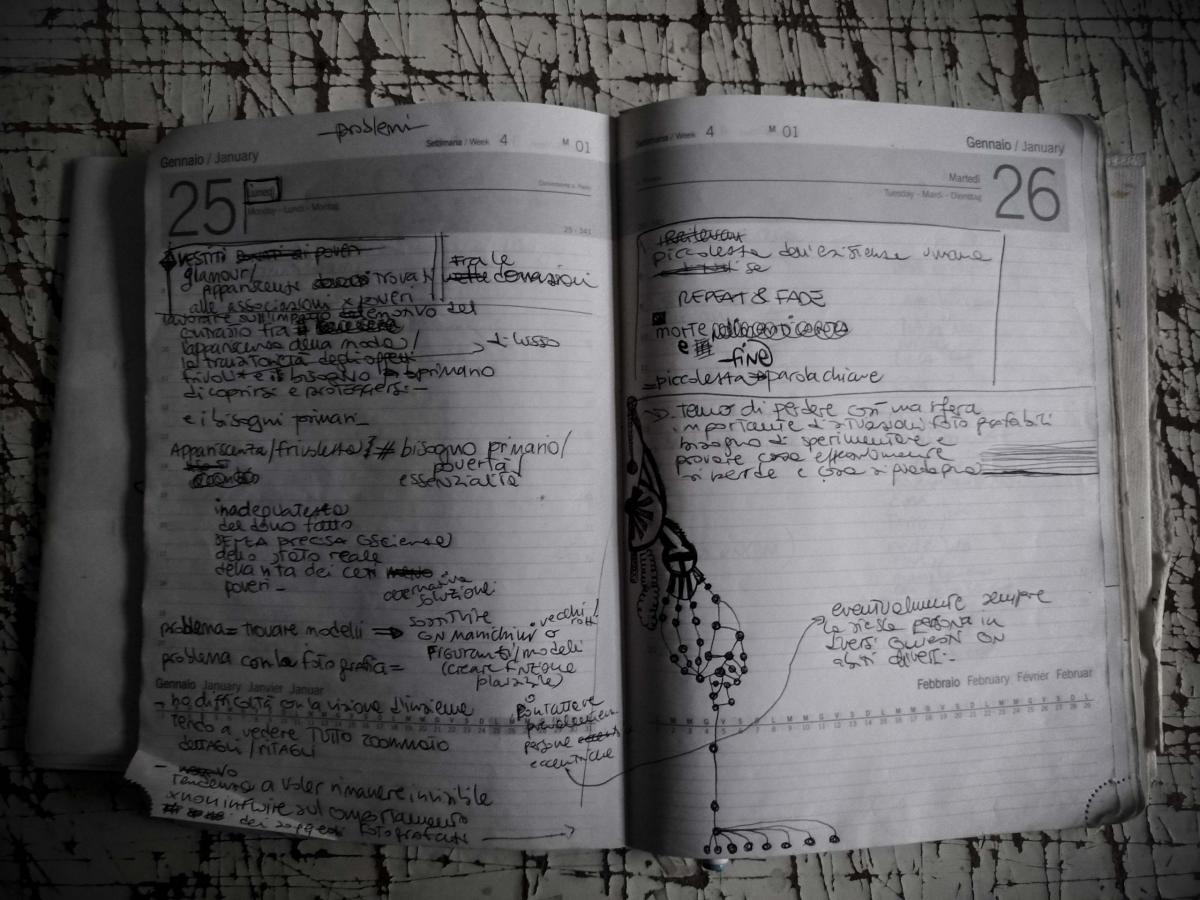 problemi
Settimana / Week 4 M 01
Gennaio / January
25 lunedì
Monday - Lundi - Montag
25 - 341
VESTITI poveri
glamour/
appariscenti trova
alle associazioni x poveri
tra le
donazioni
lavorare sull'impatto emotivo del
contrasto tra
l'appariscenza della moda /
il lusso
la transitorietà degli oggetti
frivoli e il bisogno primario
di coprirsi e proteggersi -
e i bisogni primari
Appariscenza/frivolezza } # bisogno primario/
povertà/
essenzialità
inadeguatezza
del dono fatto
senza precisa coscienza
dello stato reale
della vita dei ceti
poveri -
alternativa
soluzione
problema = trovare modelli ⇒
sostituire
con manichini o
vecchi/
rotti
figuranti/modelli
(creare finzione
plausibile)
problema con la fotografia =
Gennaio January Janvier Januar
- ho difficoltà con la visione d'insieme
Tendo a vedere TUTTO zoommato
dettagli / ritagli
o
contattare
prevalentemente
persone
eccentriche
- Tendenza a voler rimanere invisibile
x non influire sul comportamento
dei soggetti fotografati
Settimana / Week 4 M 01
Gennaio / January
Martedì 26
Tuesday - Mardi - Dienstag
piccolezza dell'esistenza umana
se
REPEAT & FADE
morte
e
fine
- piccolezza parola chiave
temo di perdere con una sfera
importante di situazioni fotografabili
bisogno di sperimentare e
provare cosa effettivamente
si perde e cosa si guadagna
eventualmente sempre
la stessa persona in
diversi contesti con
abiti diversi -
Febbraio February Février Februar